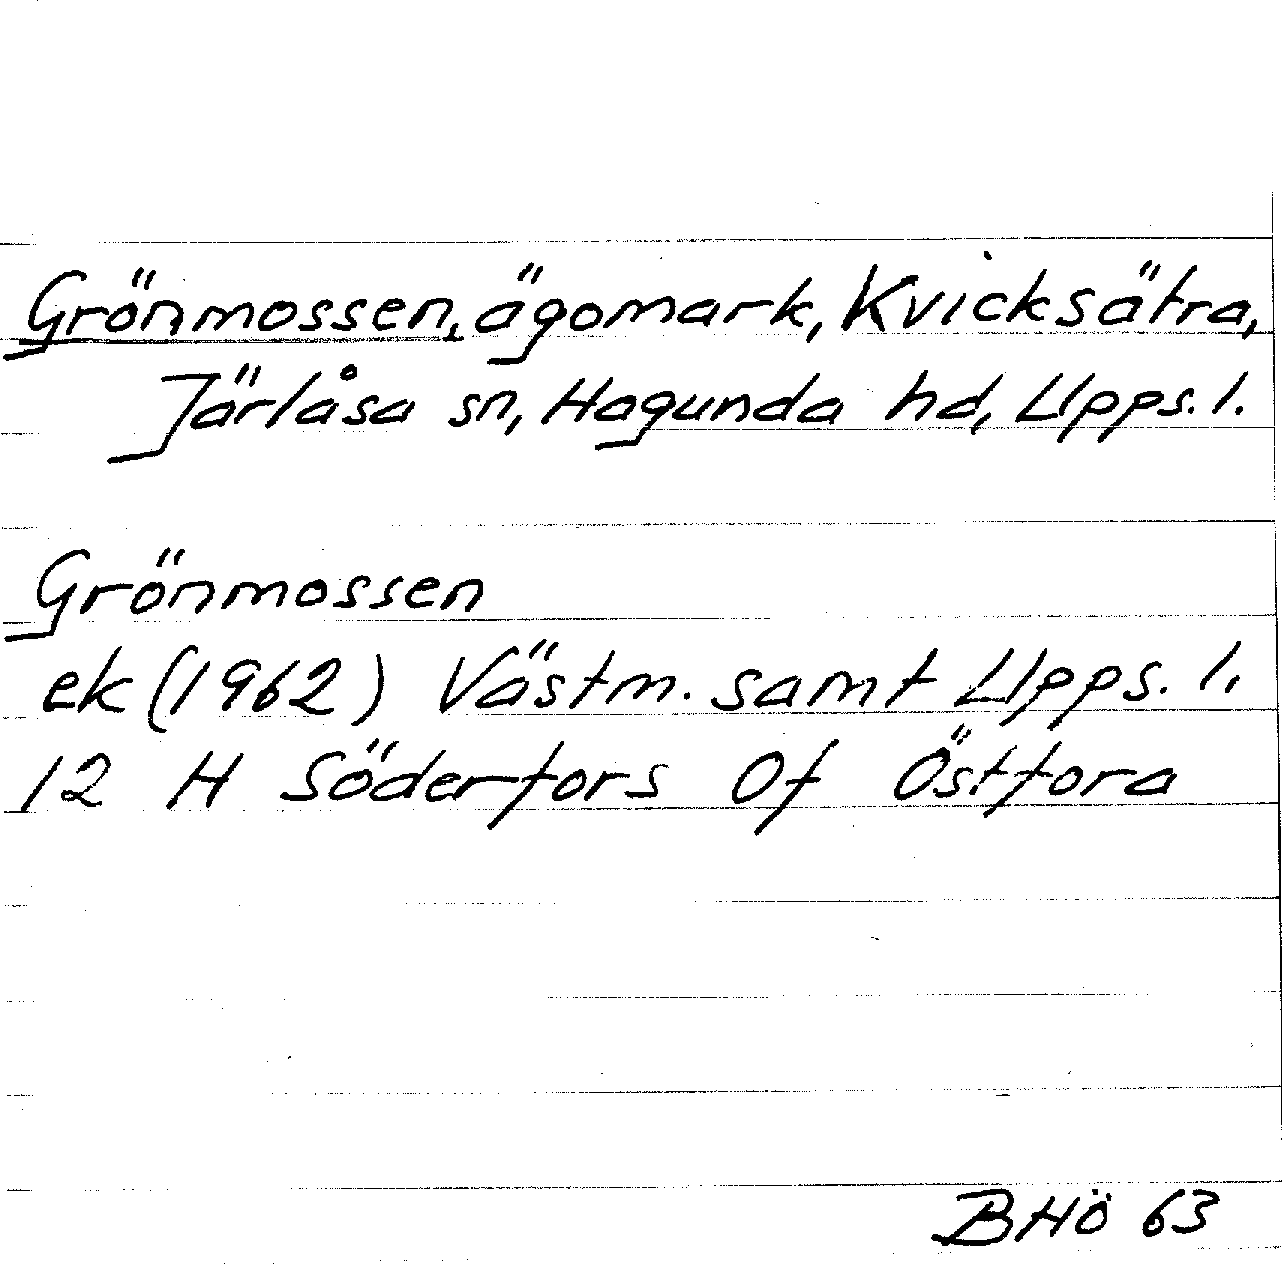 Grönmossen, ägomark, Kvicksätra,
Järlåsa sn, Hagunda hd, Upps. l.
Grönmossen
ek (1962) Västm. samt Upps. l.
12 H Söderfors 0f Östfora
BHÖ 63